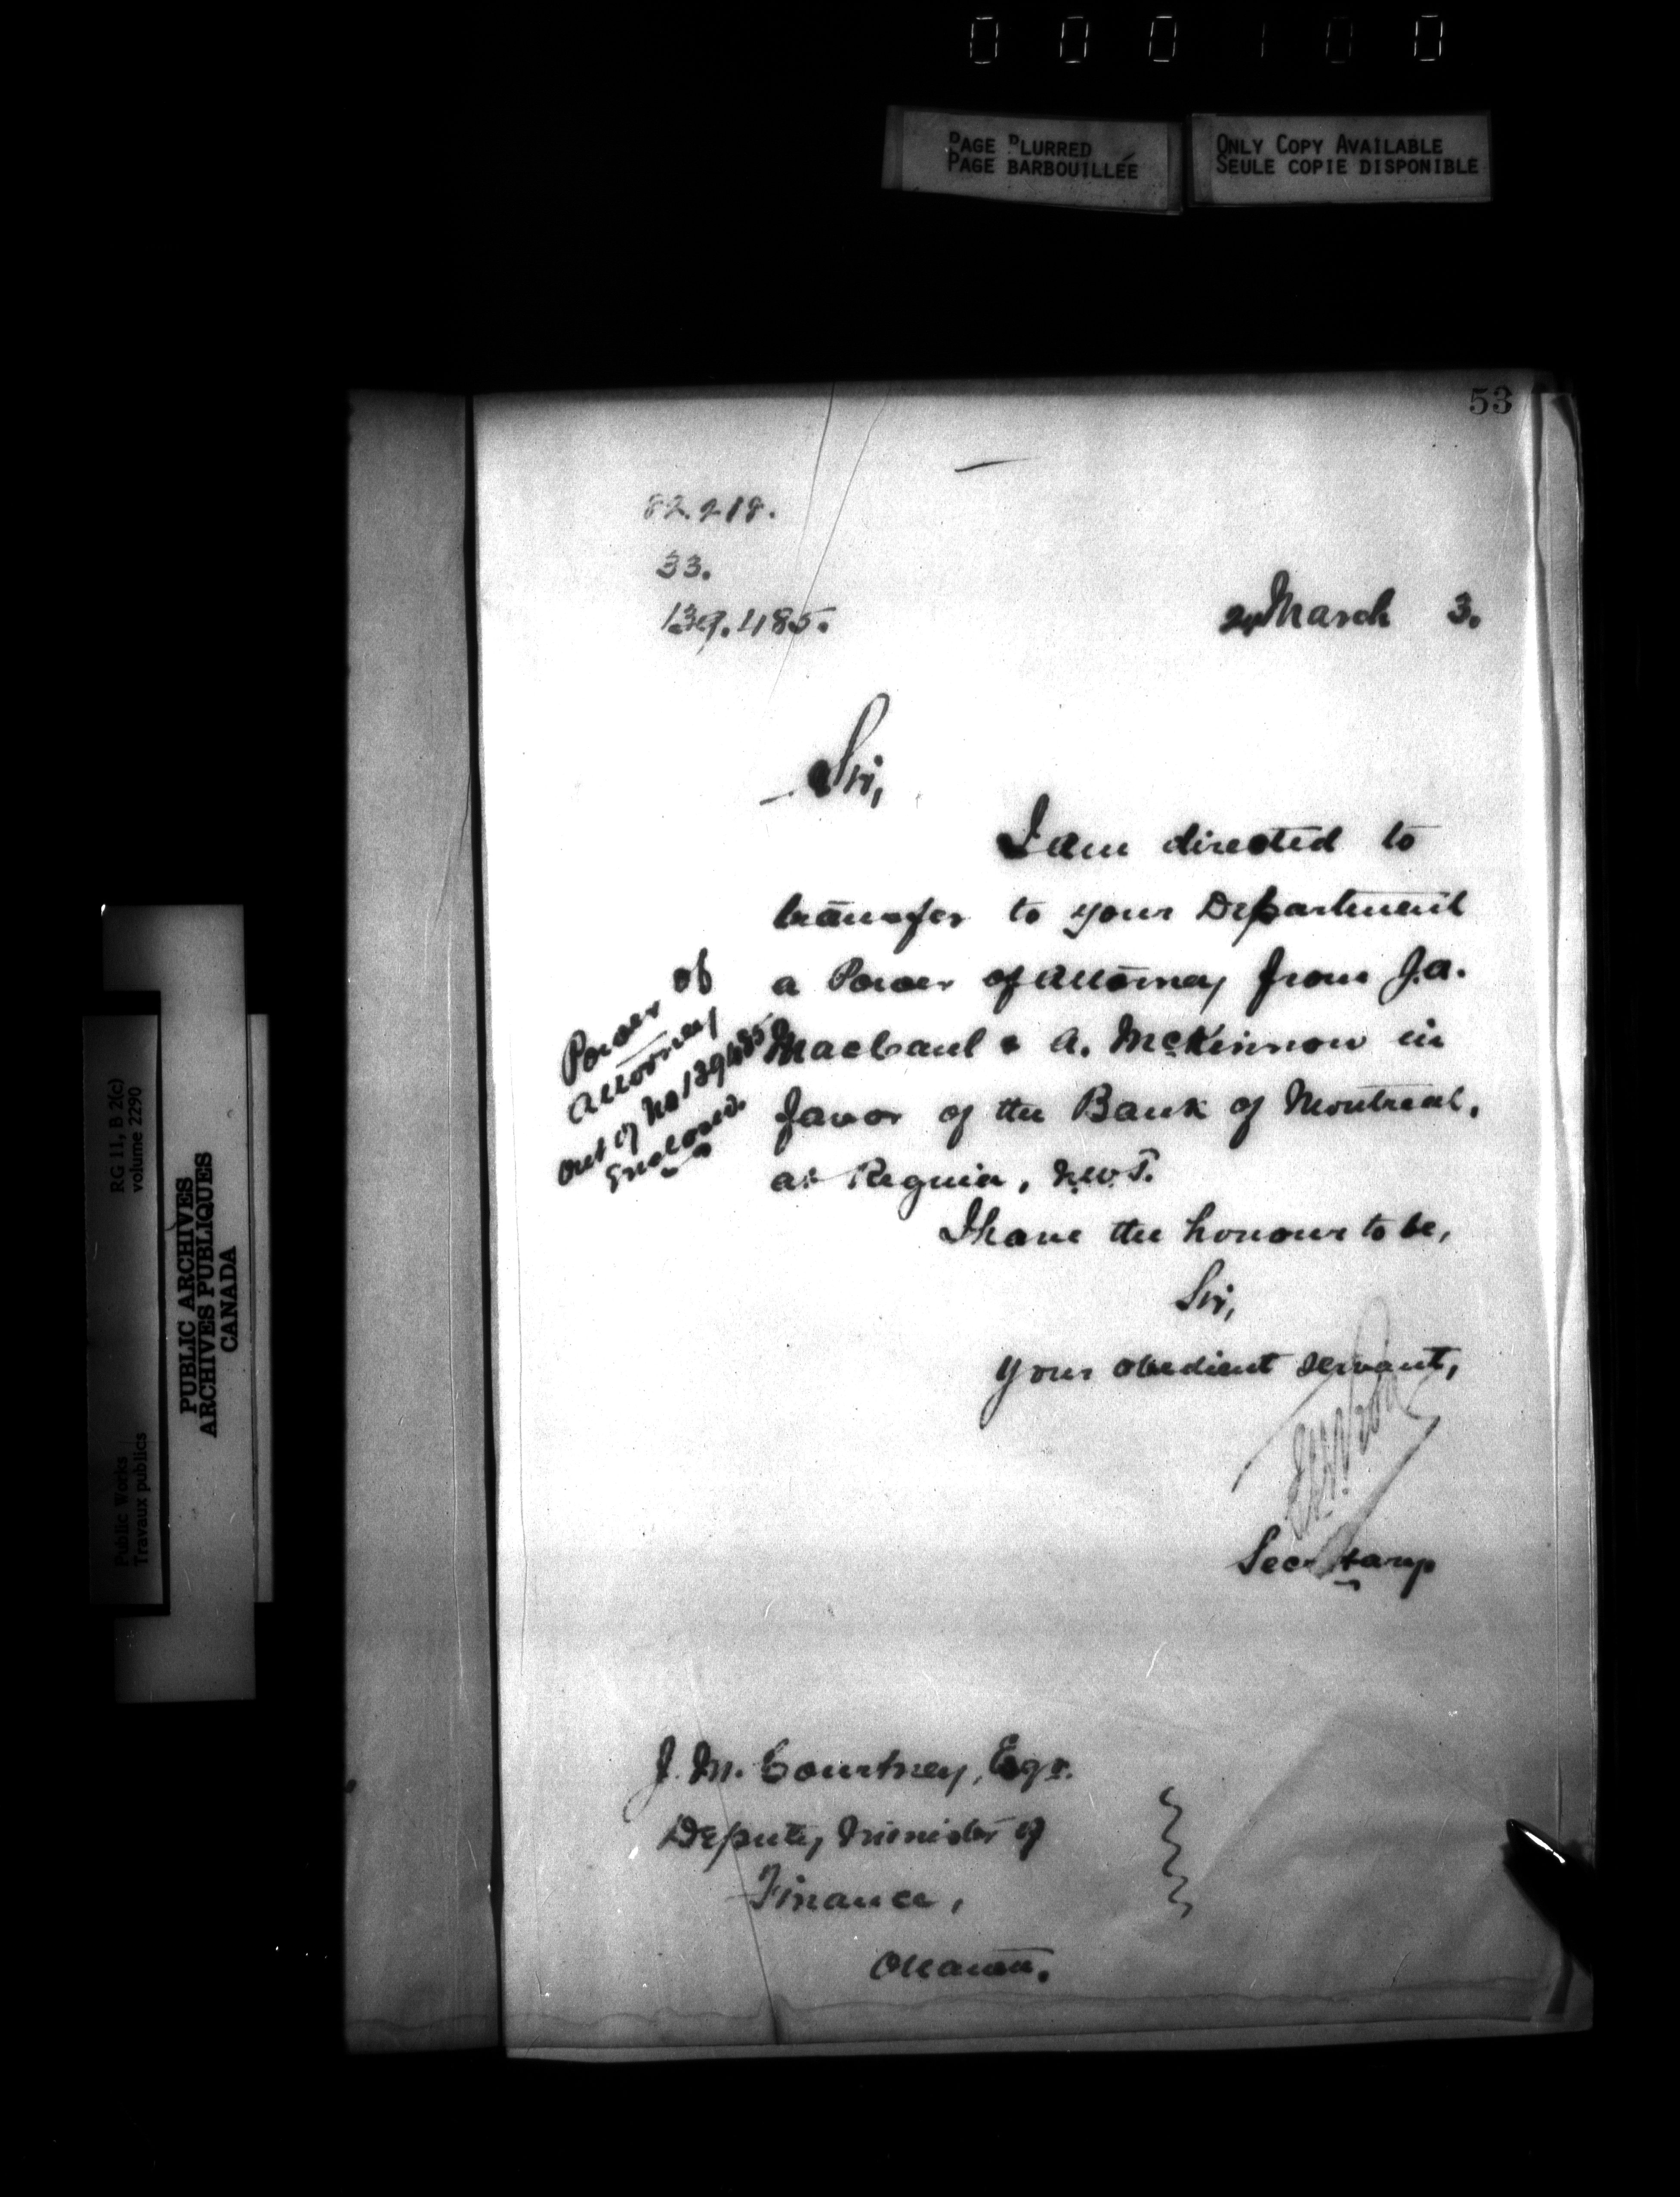 000100
PAGE BLURRED
PAGE BARBOUILLÉE
ONLY COPY AVAILABLE
SEULE COPIE DISPONIBLE
53
82.218.
33.
139.485.
24 March 3.
Sir,
I am directed to
transfer to your Department
a Power of Attorney from J.A.
& A. McKinnon in
favor of the Bank of Montreal,
at Regina, N.W.T.
Power of
Attorney
out of No 139485
Enclosed
I have the honour to be,
Sir,
Your obedient servant,
Secretary
J. M. Courtney, Esqr.
Deputy Minister of
Finance,
Ottawa.
RG 11, B 2(c)
volume 2290
Public Works
Travaux publics
PUBLIC ARCHIVES
ARCHIVES PUBLIQUES
CANADA